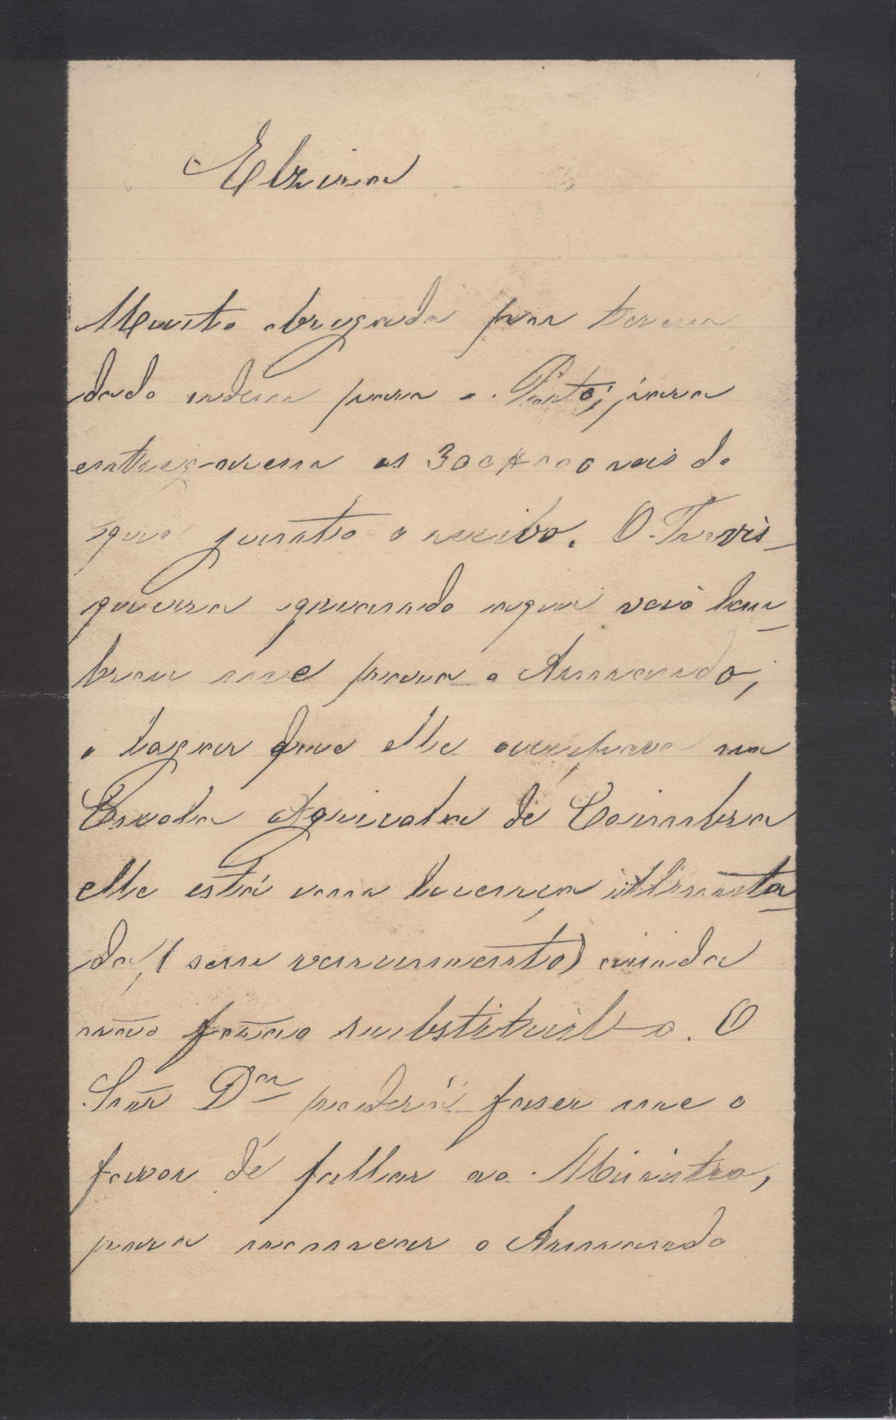 Elzira
Muito obrigada por terem
dado ordem para o Porto, para
entregarem os 300$000 reis do
que junto o recibo. O Travis-
queira quando aqui veio lem-
brou me para o Armando,
o lugar que elle occupava na
Escola Agricola de Coimbra
elle está com licença illimita-
da, (sem vencimento) ainda
não foi substituil-o. O
Snr Dor poderá faser me o
favor de fallar ao Ministro,
para nomear o Armando